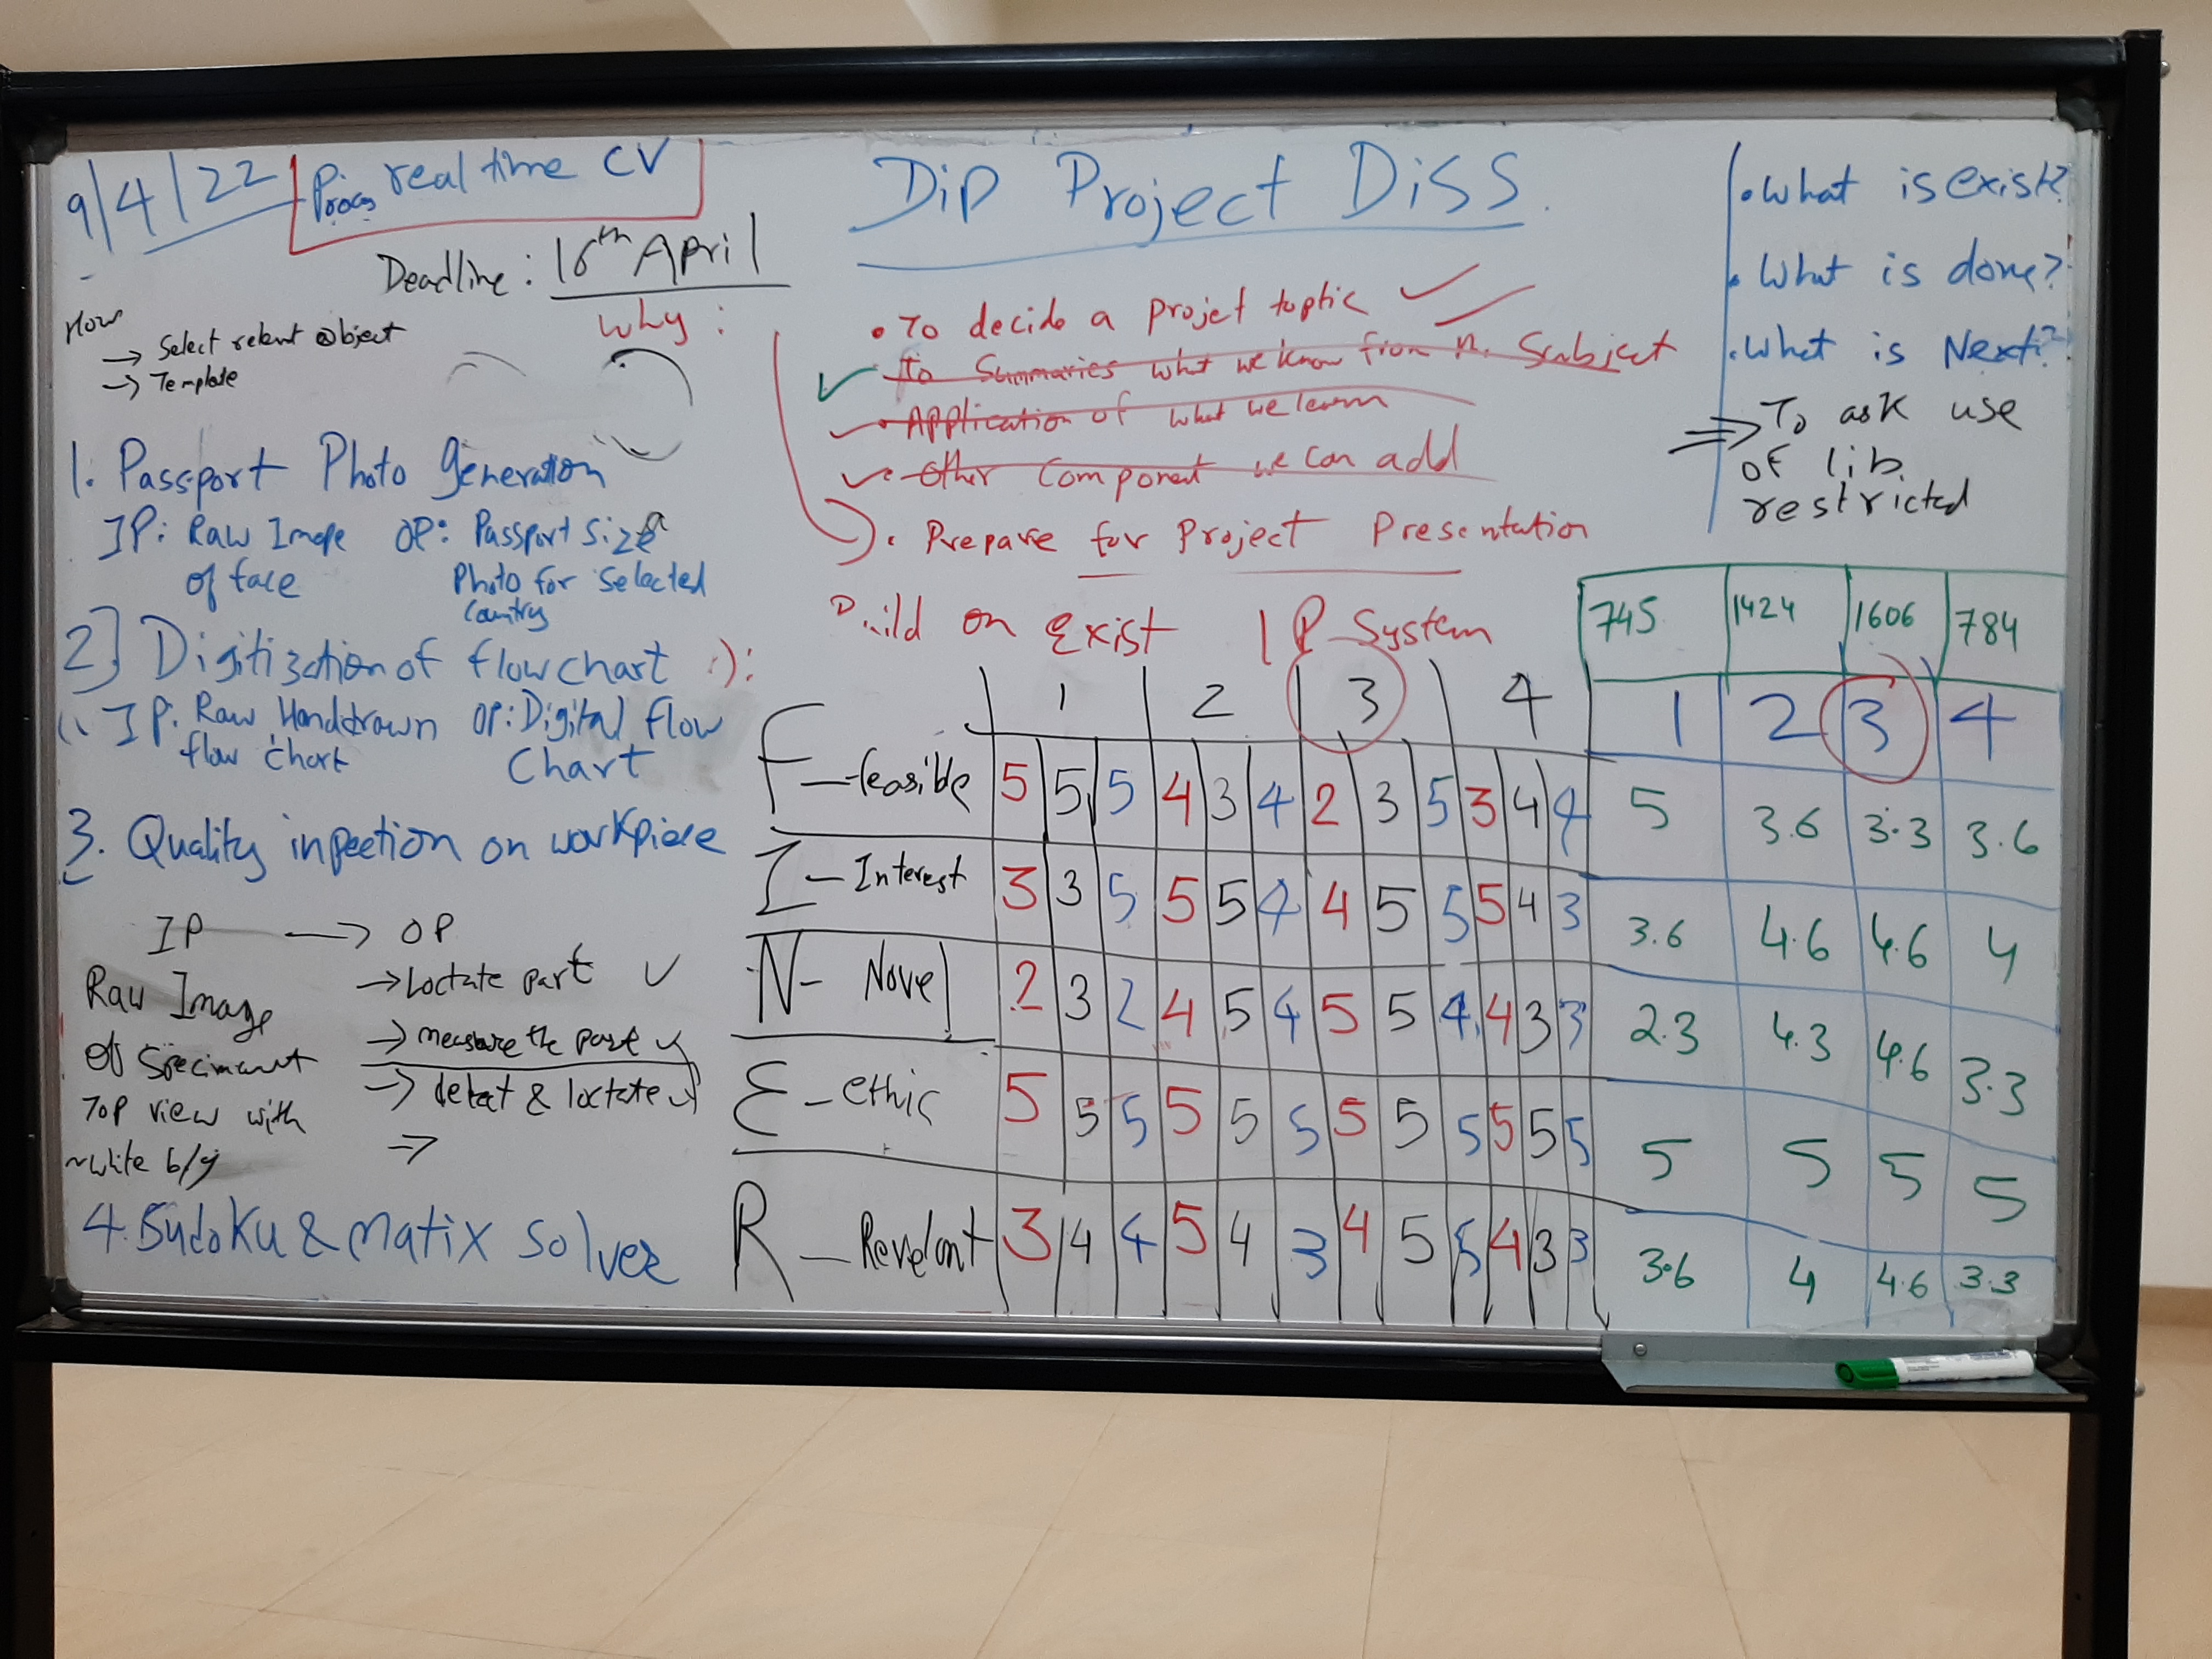 9/4/22 Proces real time CV
Deadline: 16th April
How
→ Select relevnt object
→ Template
1. Passport Photo Generation
IP: Raw Image OP: Passport Size
of face Photo for Selected
Country
2] Digitization of flow chart
IP: Raw Handdrawn OP: Digital flow
flow chart Chart
3. Quality inpection on workpiece
IP → OP
Raw Image → Loctate part ✓
of Speciment → measure the part ✓
Top view with → detect & loctate ✓
white b/g ⇒
4. Sudoku & Matix Solver
Dip Project Diss.
Why:
• To decide a projet toptic ✓
✓ To Summaries what we know from Subject
✓ • Application of what we learn
✓ • Other Component we can add
• Prepare for Project Presentation
Build on Exist IP System
• What is exist?
• What is done?
• What is Next?
⇒ To ask use
of lib.
restricted
1 2 3 4
F – feasible 5 5 5 4 3 4 2 3 5 3 4 4
I – Interest 3 3 5 5 5 4 4 5 5 5 4 3
N – Novel 2 3 2 4 5 4 5 5 4 4 3 3
E – ethic 5 5 5 5 5 5 5 5 5 5 5 5
R – Revelant 3 4 4 5 4 3 4 5 5 4 3 3
745 1424 1606 784
1 2 3 4
5 3.6 3.3 3.6
3.6 4.6 4.6 4
2.3 4.3 4.6 3.3
5 5 5 5
3.6 4 4.6 3.3